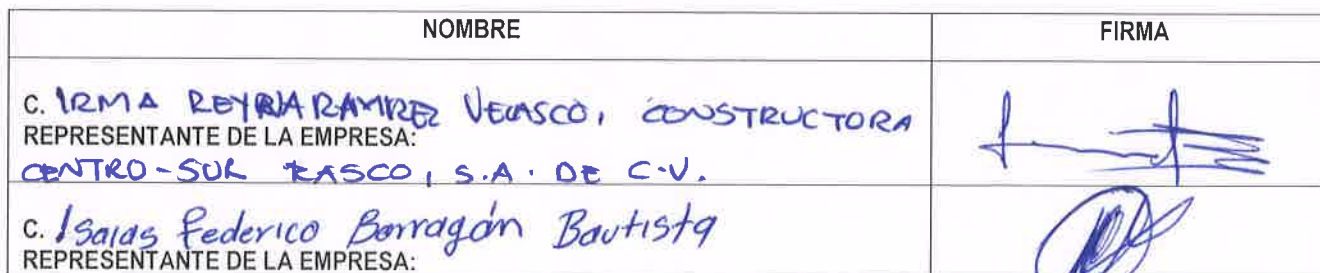 NOMBRE FIRMA
C. IRMA REYNA RAMIREZ VELASCO, CONSTRUCTORA
REPRESENTANTE DE LA EMPRESA:
CENTRO-SUR RASCO, S.A. DE C.V.
C. Isaias Federico Barragán Bautista
REPRESENTANTE DE LA EMPRESA: